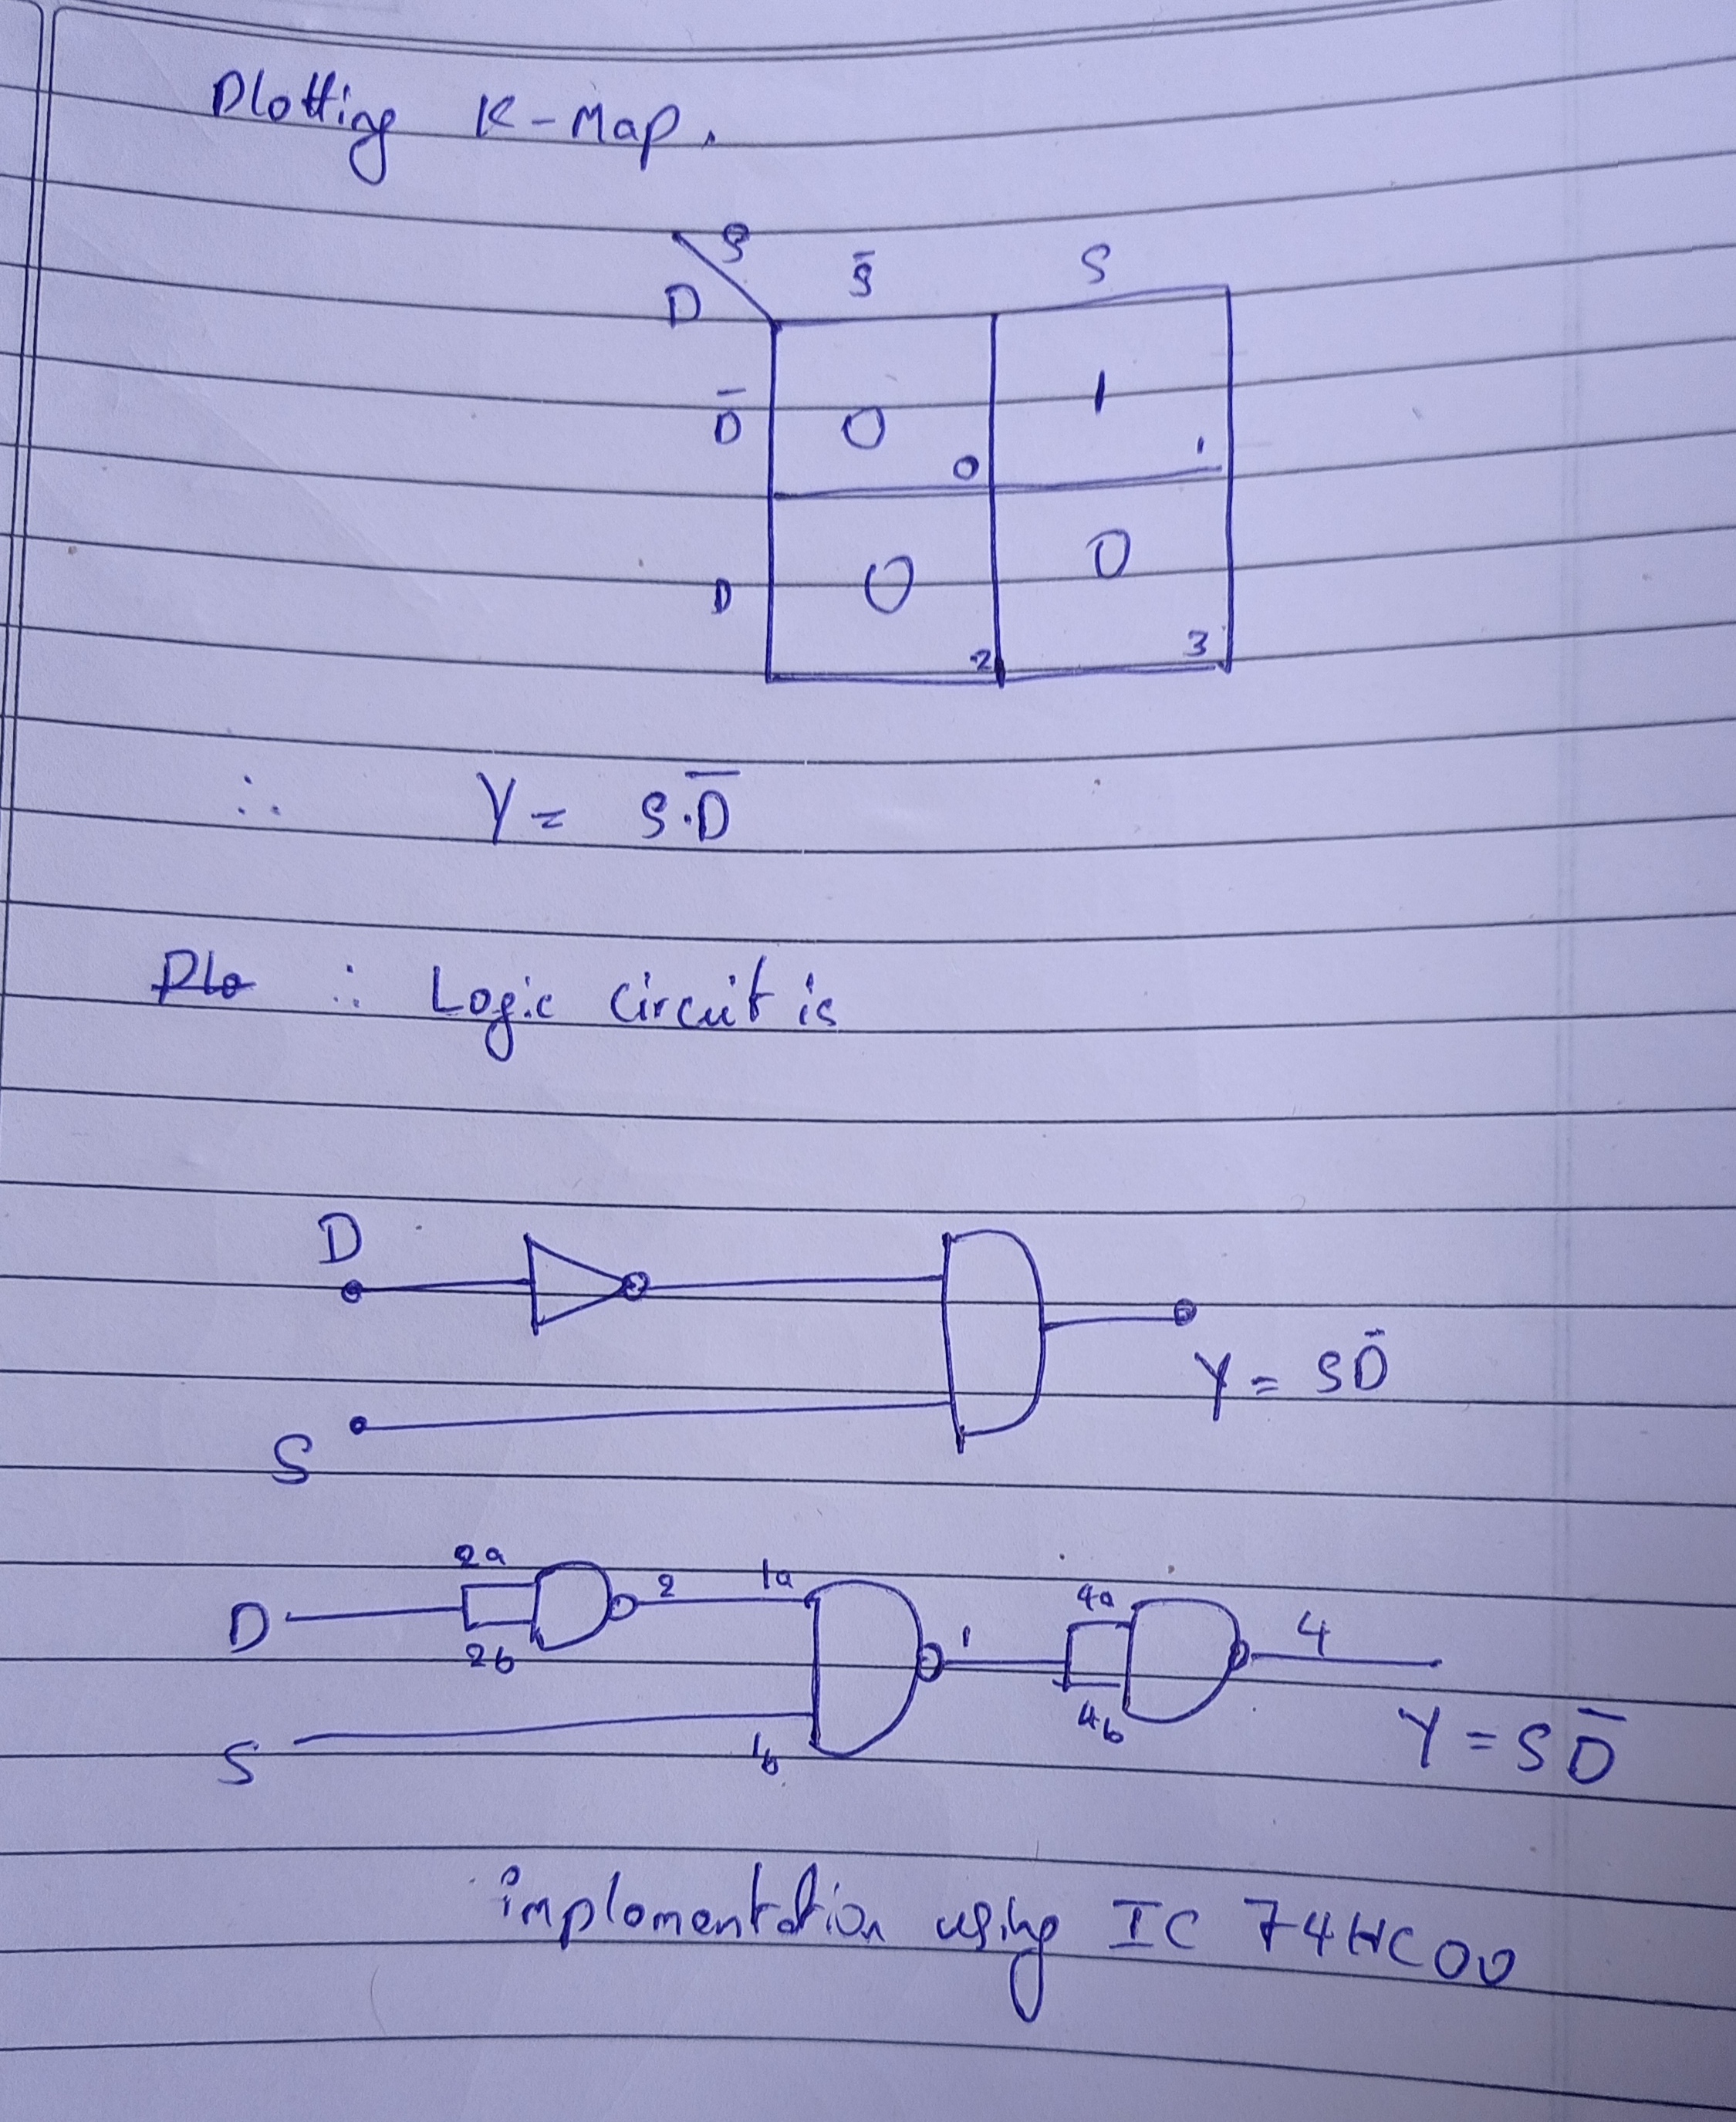 Plotting K-Map.
S
D
S̄ S
D̄ 0 0 1 1
D 0 2 0 3
∴ Y = S.D̄
Plo ∴ Logic circuit is
D
S
Y = SD̄
2a 2 1a 4a
D 1 4
2b
S 1b 4b
Y = SD̄
implomentation using IC 74HC00